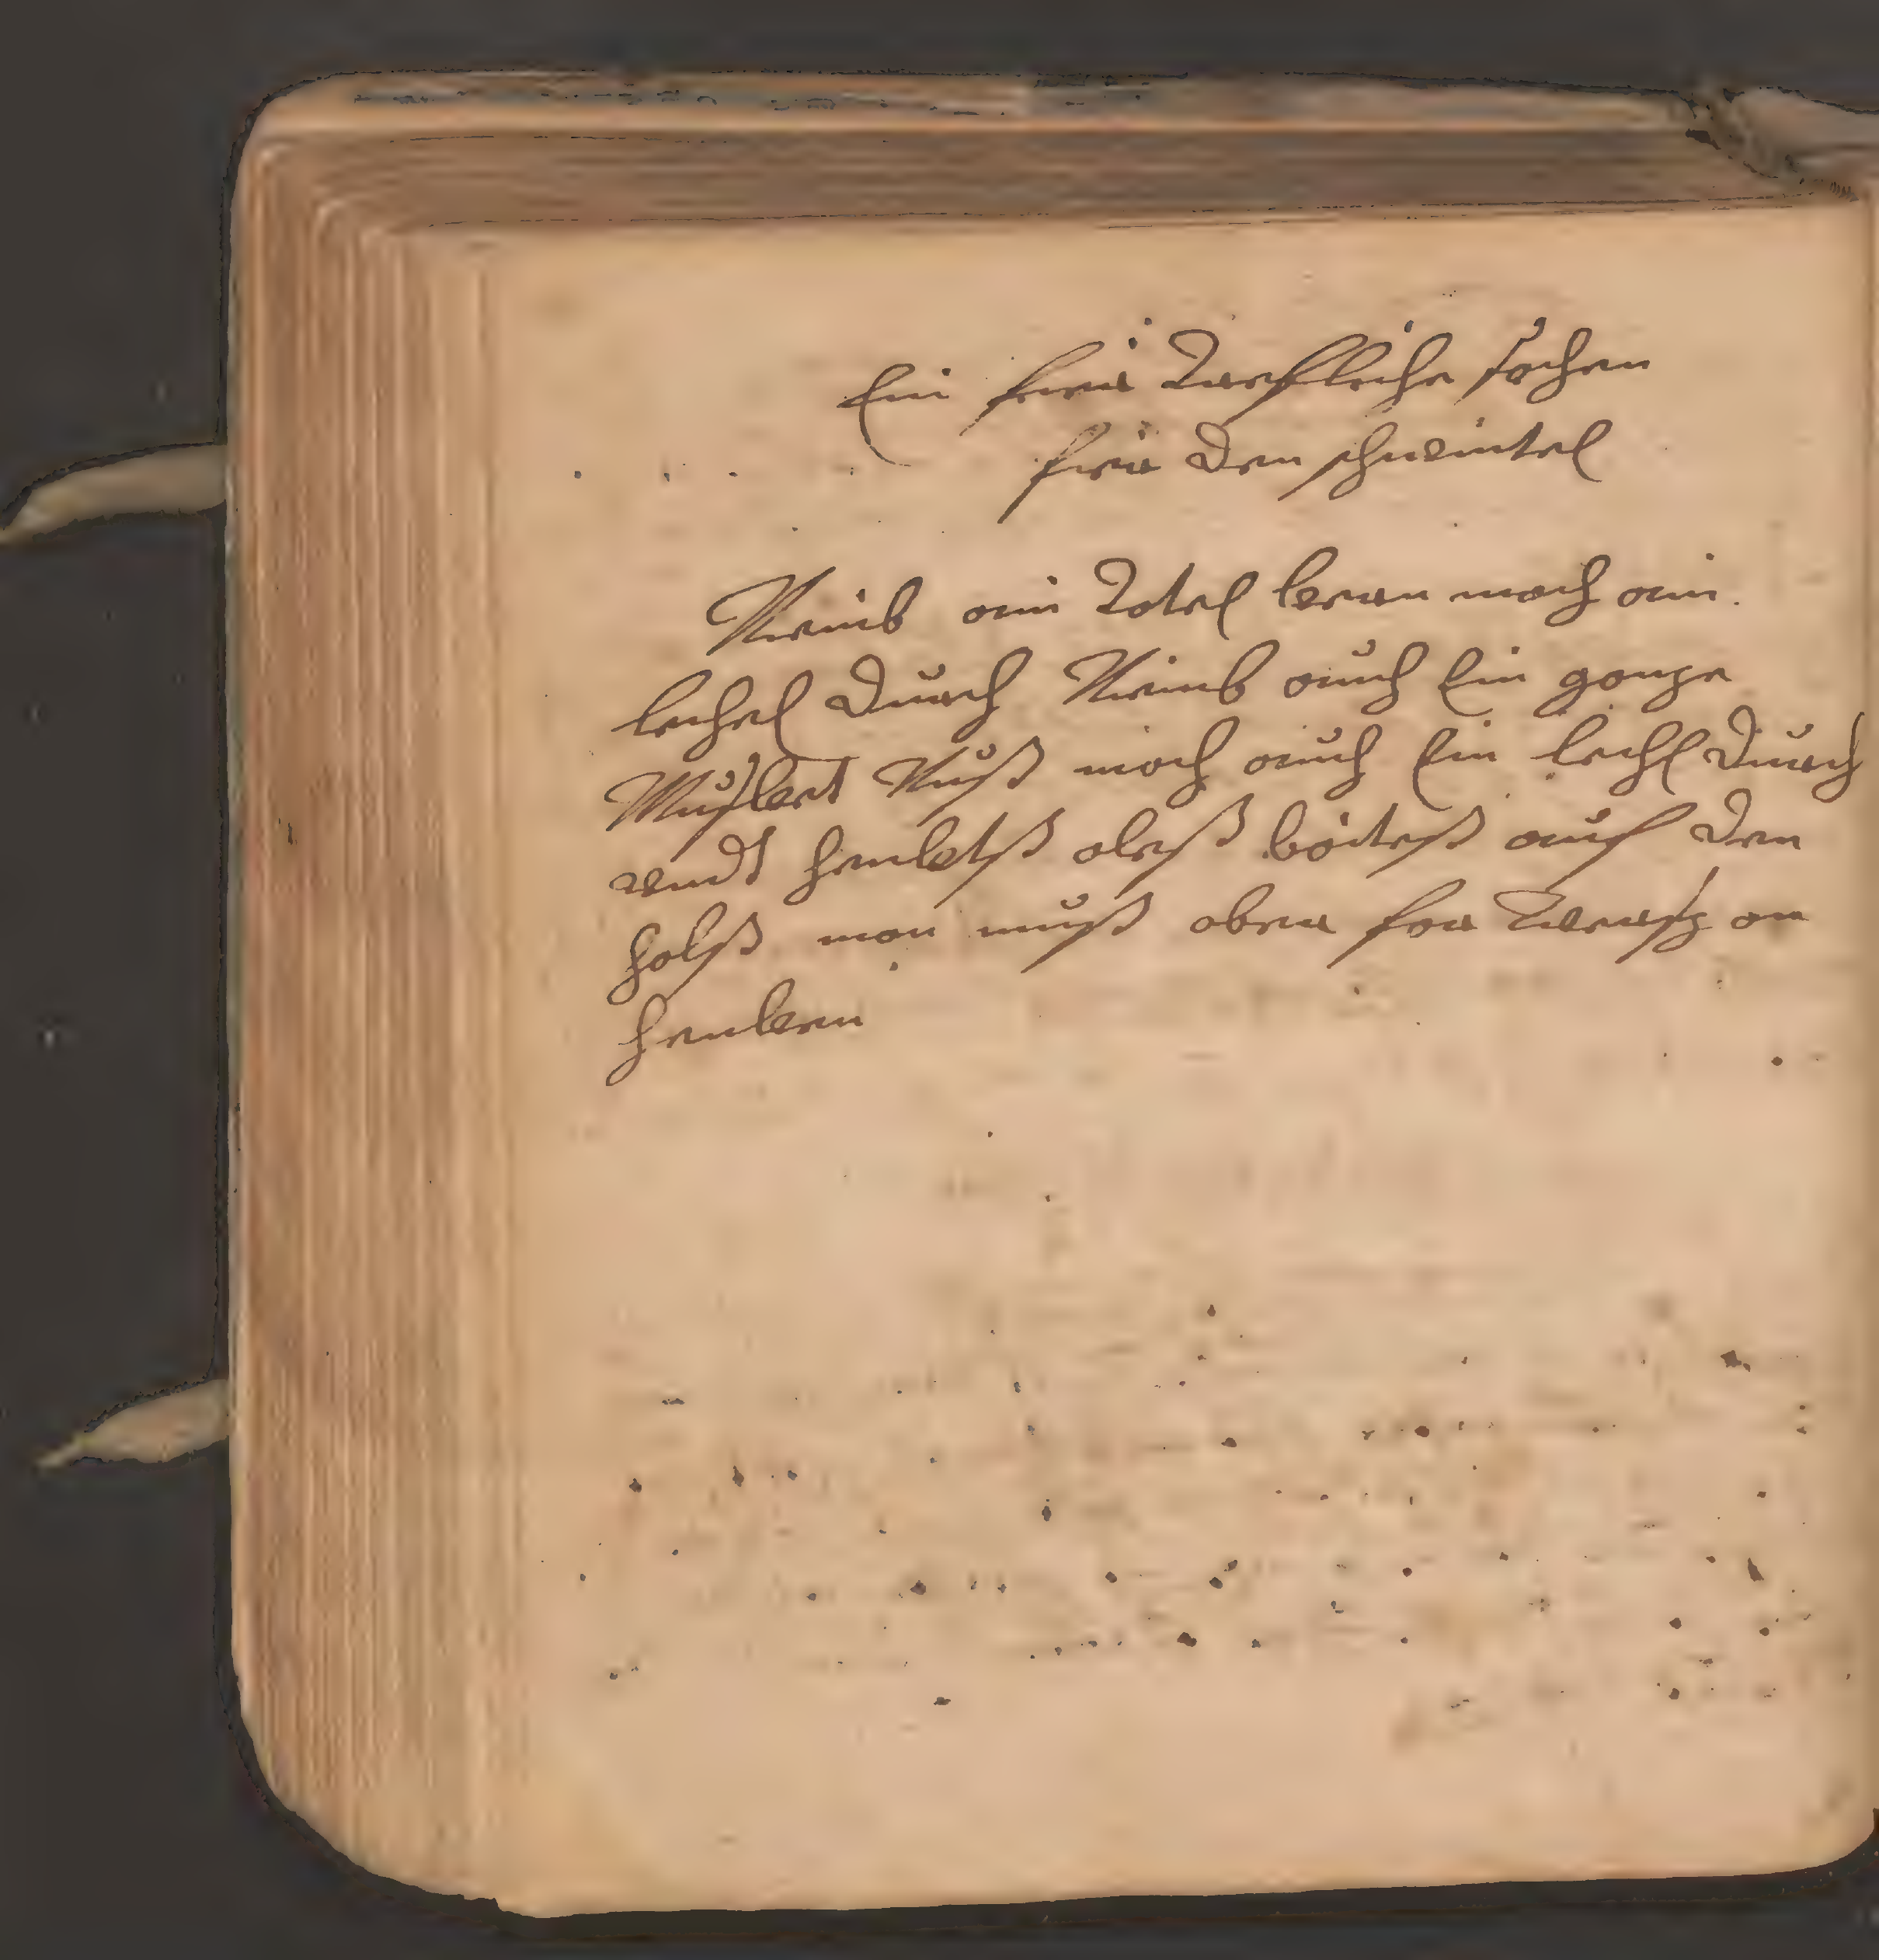 Ein fier Trefliche sachen
fier den schwintel
Niemb ain Totel kern mach ain
lechel durch Niemb auch Ein ganze
Muskert Nuß mach auch Ein lechl durch
vndt henktß aleß böiteß auf den
halß man muß aber for Zwerhz an
henken